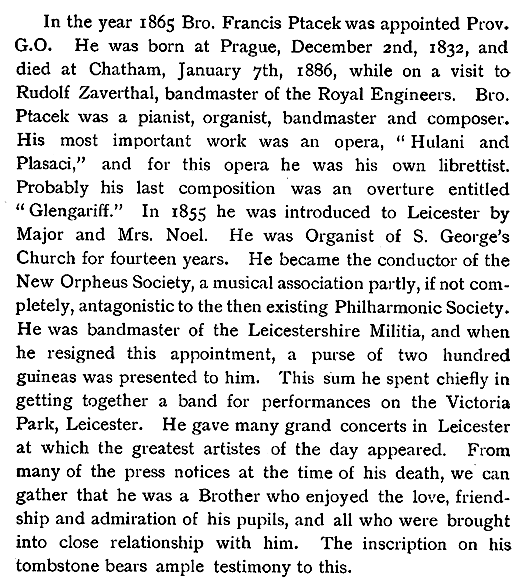 In the year 1865 Bro. Francis Ptacek was appointed Prov.
G.O. He was born at Prague, December 2nd, 1832, and
died at Chatham, January 7th, 1886, while on a visit to
Rudolf Zaverthal, bandmaster of the Royal Engineers. Bro.
Ptacek was a pianist, organist, bandmaster and composer.
His most important work was an opera, "Hulani and
Plasaci," and for this opera he was his own librettist.
Probably his last composition was an overture entitled
"Glengariff." In 1855 he was introduced to Leicester by
Major and Mrs. Noel. He was Organist of S. George's
Church for fourteen years. He became the conductor of the
New Orpheus Society, a musical association partly, if not com-
pletely, antagonistic to the then existing Philharmonic Society.
He was bandmaster of the Leicestershire Militia, and when
he resigned this appointment, a purse of two hundred
guineas was presented to him. This sum he spent chiefly in
getting together a band for performances on the Victoria
Park, Leicester. He gave many grand concerts in Leicester
at which the greatest artistes of the day appeared. From
many of the press notices at the time of his death, we can
gather that he was a Brother who enjoyed the love, friend-
ship and admiration of his pupils, and all who were brought
into close relationship with him. The inscription on his
tombstone bears ample testimony to this.